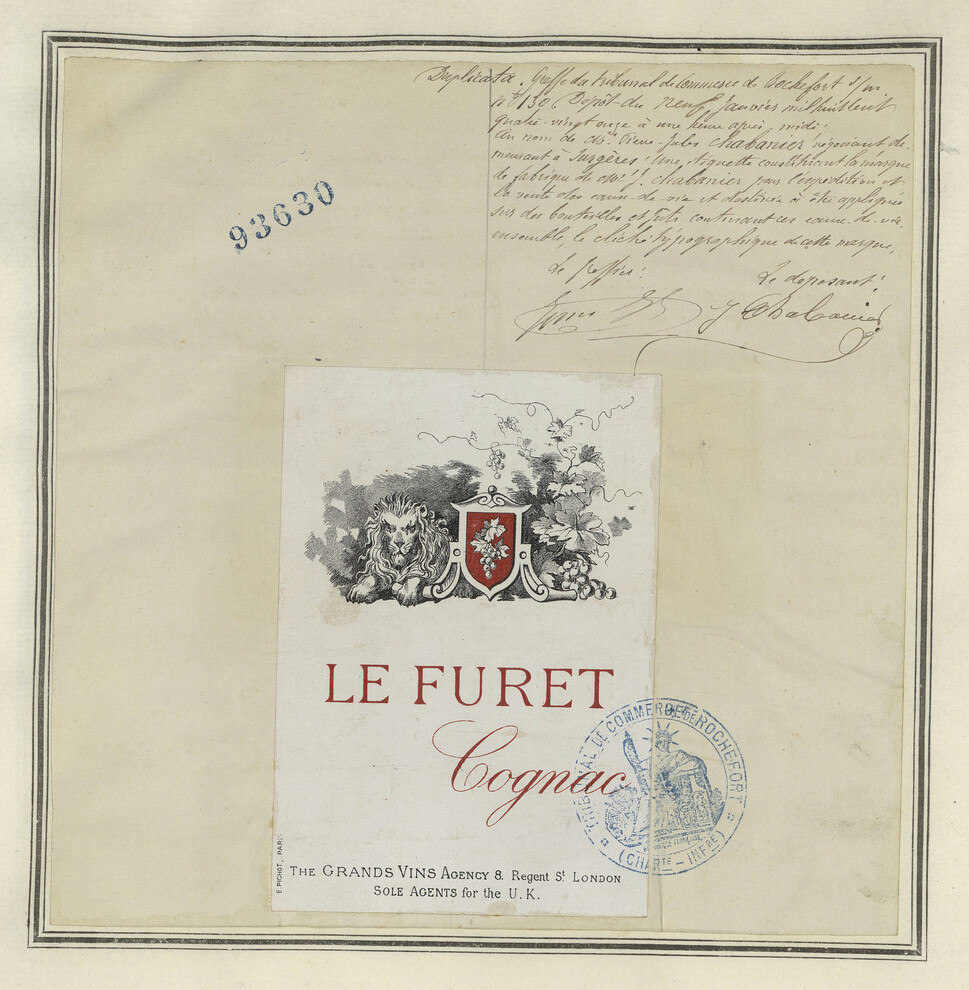 Duplicata. Greffe du tribunal de Commerce de Rochefort s/m
N° 130. Dépôt du neuf Janvier mil huit cent
quatre-vingt onze à une heure après midi:
au nom de Mr. Pierre Jules Chabanier négociant de-
meurant à Surgères: Une étiquette constituant la marque
de fabrique de Mr. J. Chabanier pour l'expédition et
la vente des eaux-de-vie et destinée à être appliquée
sur des bouteilles et fûts contenant ces eaux-de-vie
ensemble, le cliché typographique de cette marque,
Le greffier: Le déposant:
J Chabanier
93630
LE FURET
Cognac
E. PICHOT, PARIS
THE GRANDS VINS AGENCY 8. Regent St LONDON
SOLE AGENTS for the U. K.
TRIBUNAL DE COMMERCE DE ROCHEFORT
(CHARTE - INFRE)